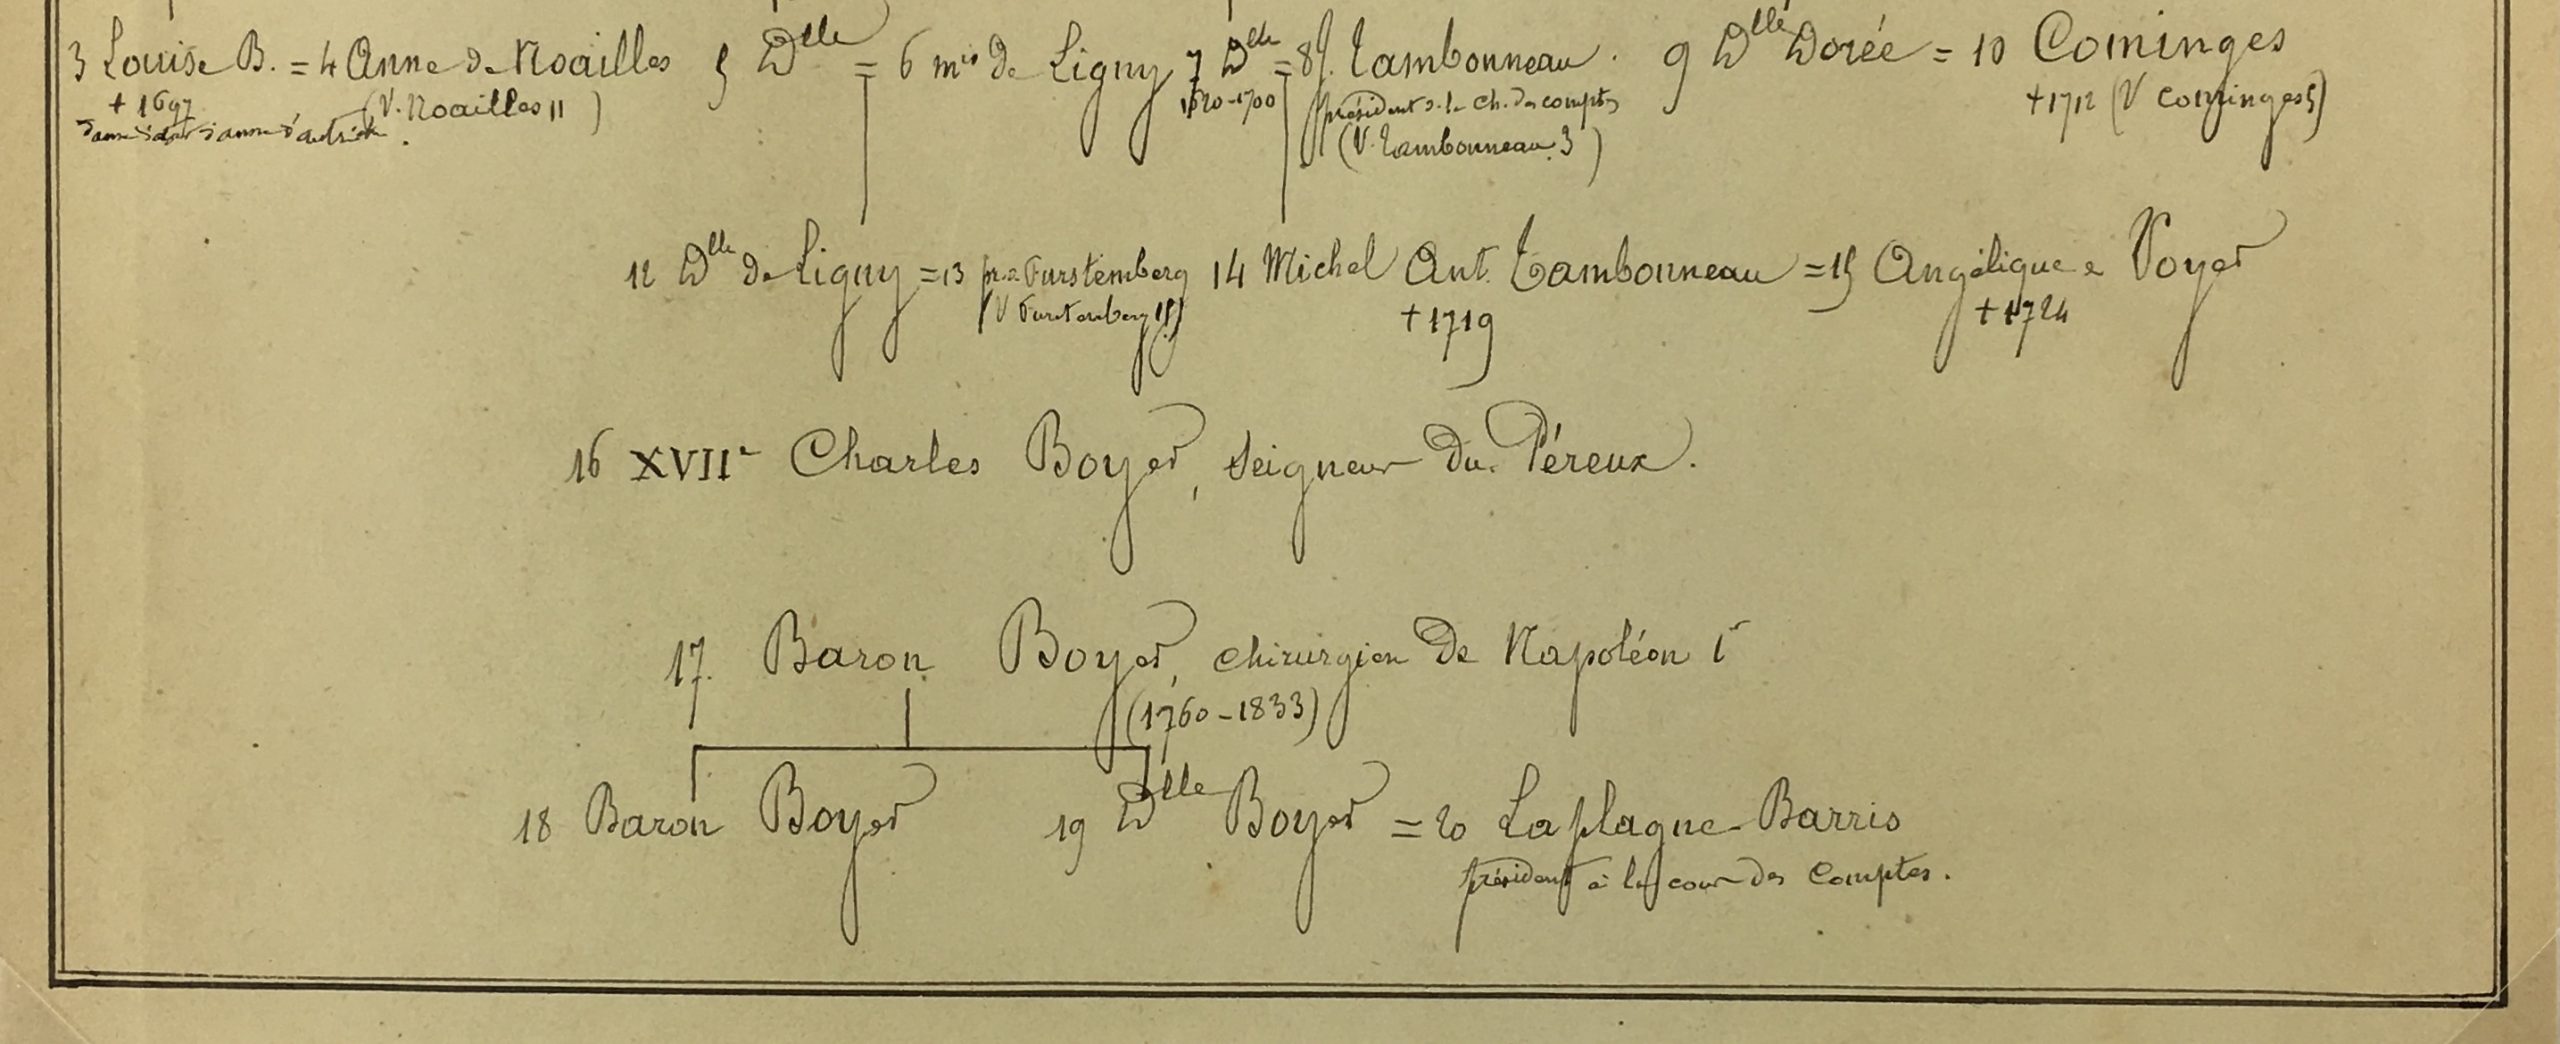 3 Louise B. = 4 Anne de Noailles 5 Dlle = 6 mis de Ligny 7 Dlle = 8 J. Tambonneau. 9 Dlle Dorée = 10 Cominges
+ 1697 (V. Noailles 11) 1620-1700 président d. la Ch. des comptes +1712 (V Cominges 5)
dame d'atour d'anne d'autriche. (V. Tambonneau 3)
12 Dlle de Ligny = 13 pr. de Furstemberg 14 Michel Ant. Tambonneau = 15 Angélique de Voyer
(V Furstemberg 15) +1719 +1724
16 XVIIe Charles Boyer, seigneur du Péreux.
17. Baron Boyer, chirurgien de Napoléon Ir
(1760-1833)
18 Baron Boyer 19 Dlle Boyer = 20 Laplagne-Barris
président à la cour des Comptes.